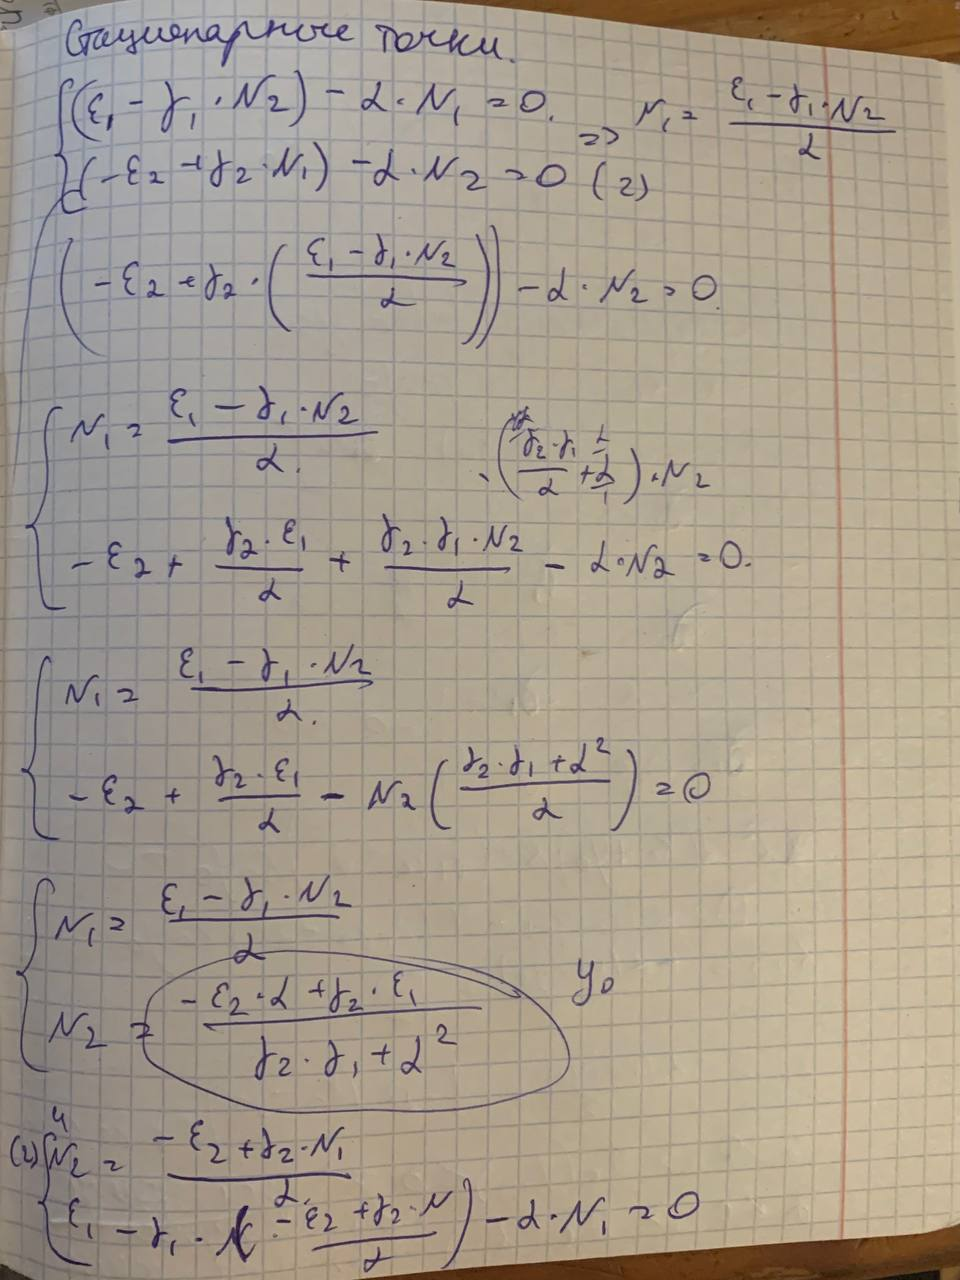 Стационарные точки.
(ε₁ - γ₁·N₂) - α·N₁ = 0. => N₁ = (ε₁ - γ₁·N₂)/α
(-ε₂ + γ₂·N₁) - α·N₂ = 0 (2)
(-ε₂ + γ₂·((ε₁ - γ₁·N₂)/α)) - α·N₂ = 0.
N₁ = (ε₁ - γ₁·N₂)/α.
·((γ₂·γ₁)/α + α/1)·N₂
-ε₂ + (γ₂·ε₁)/α + (γ₂·γ₁·N₂)/α - α·N₂ = 0.
N₁ = (ε₁ - γ₁·N₂)/α.
-ε₂ + (γ₂·ε₁)/α - N₂((γ₂·γ₁ + α²)/α) = 0
N₁ = (ε₁ - γ₁·N₂)/α
N₂ = (-ε₂·α + γ₂·ε₁)/(γ₂·γ₁ + α²) y₀
(2) N₂ = (-ε₂ + γ₂·N₁)/α.
ε₁ - γ₁·(-ε₂ + γ₂·N)/α) - α·N₁ = 0